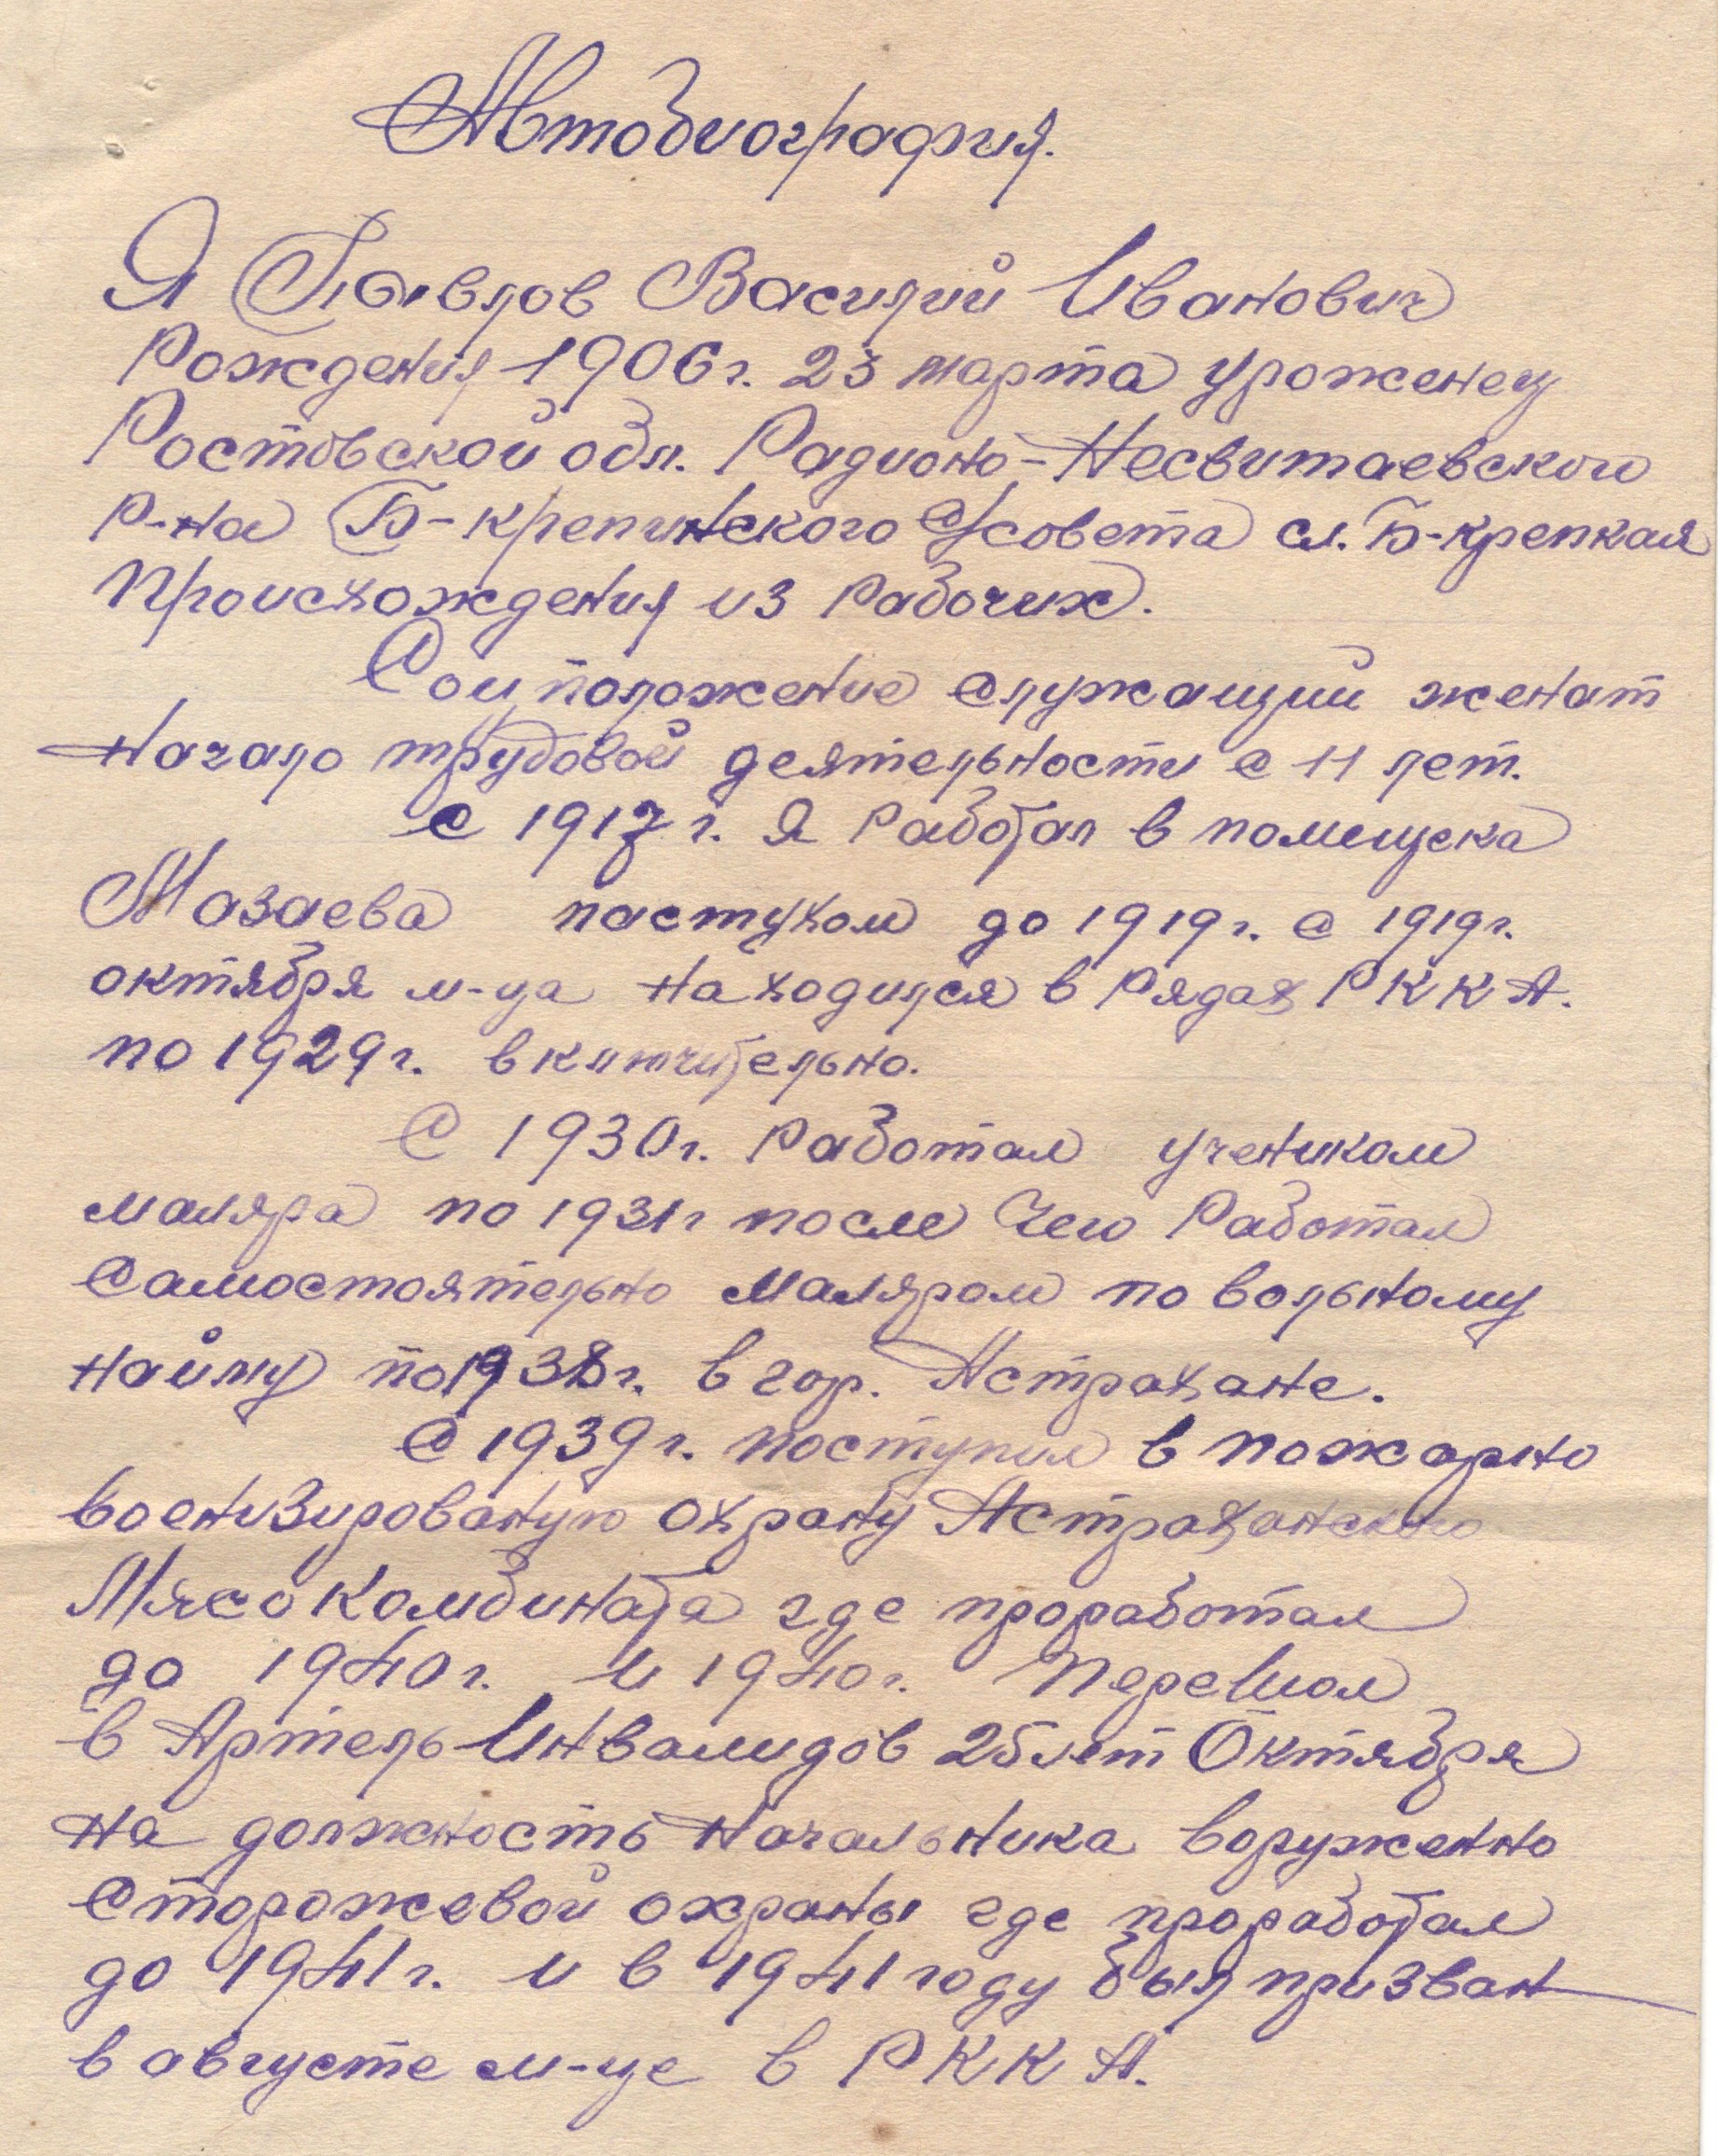 Автобиография.
Я Павлов Василий Иванович
Рождения 1906г. 23 марта уроженец
Ростовской обл. Радионо-Несвитаевского
р-на Б-крепинского С/совета сл. Б-крепкая
Происхождения из рабочих.
Соц положение служащий женат
Начало трудовой деятельности с 11 лет.
с 1917г. Я работал в помещека
Мазаева пастухом до 1919г. с 1919г.
октября м-ца находился в рядах РККА.
по 1929г. включительно.
С 1930г. работал учеником
маляра по 1931г после чего работал
самостоятельно маляром по вольному
найму по 1938г. в гор. Астрахане.
С 1939г. поступил в пожарно
военизированую охрану Астраханского
Мясокомбината где проработал
до 1940г. и 1940г. перешол
в Артель Инвалидов 25 лет Октября
на должность Начальника воруженно
сторожевой охраны где проработал
до 1941г. и в 1941 году был призван
в августе м-це в РККА.